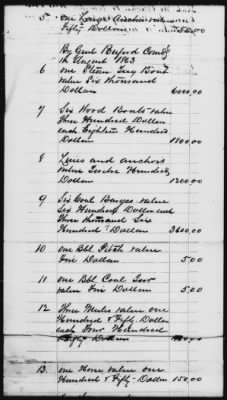 5 one Large Anchor
Fifty Dollars 50.00
By Genl Buford Comdg
in August 1863
6 one Steam Ferry Boat
value Six thousand
Dollars 6000,00
7 Six Wood Boats value
Three Hundred Dollars
each Eighteen Hundred
Dollars 1800.00
8 Lines and anchors
value Twelve Hundred
Dollars 1200.00
9 Six Coal Barges value
Six Hundred Dollars each
Three thousand Six
Hundred Dollars 3600,00
10 one Bbl Pitch value
Five Dollars 5,00
11 one Bbl Coal Tar
value Five Dollars 5,00
12 Three Mules value one
Hundred & Fifty Dollars
each Four Hundred
& Fifty Dollars
13. one Horse value one
Hundred & Fifty Dollars 150,00